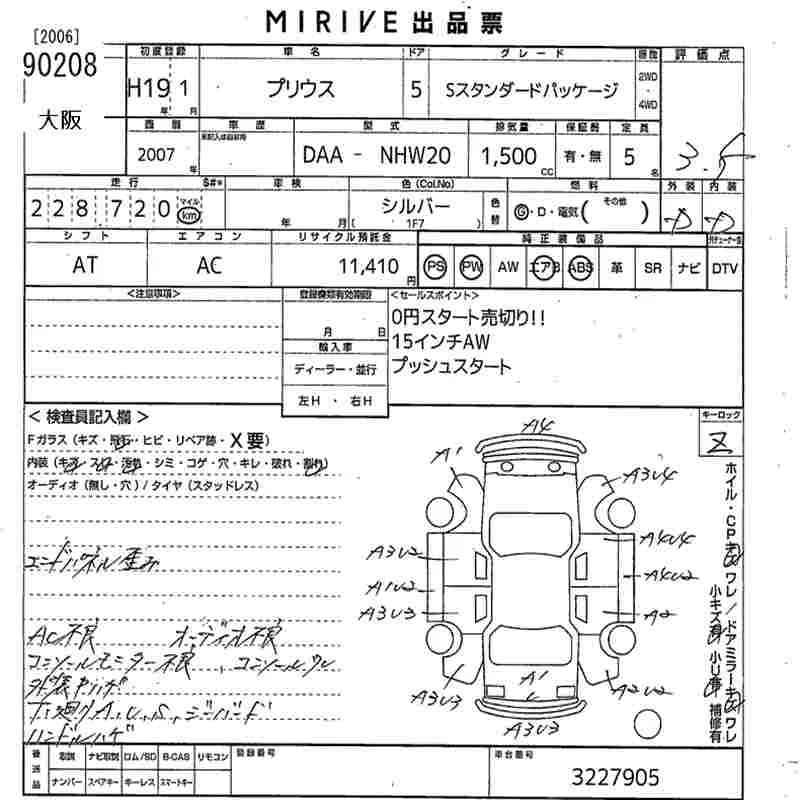 MIRIVE 出品票
[2006]
90208
大阪
初度登録 車名 ドア グレード 駆動 評価点
H19 1 プリウス 5 Sスタンダードパッケージ 2WD 4WD
年 月
西暦 車歴 型式 排気量 保証書 定員
2007 年 DAA - NHW20 1,500 cc 有・無 5 名 3.5
走行 車検 色(Col.No) 燃料 外装 内装
228720 マイル km 年 月 シルバー ( 1F7 ) 色替 G・D・電気( その他 )
シフト エアコン リサイクル預託金 純正装備品
AT AC 11,410 円 PS PW AW エアB ABS 革 SR ナビ DTV
<注意事項> 登録書類有効期限 <セールスポイント>
月 日
0円スタート売切り!!
輸入車
15インチAW
ディーラー・並行
プッシュスタート
左H ・ 右H
<検査員記入欄>
キーロック
Fガラス(キズ・飛石・ヒビ・リペア跡・X要)
内装(キズ・スレ・汚れ・シミ・コゲ・穴・キレ・破れ・割れ)
オーディオ(無し・穴)/タイヤ(スタッドレス)
エンドパネル歪み
AC不良 オーディオ不良
コンソールモニター不良、コンソールワレ
下廻りA、U、S、
ハンドルハゲ
A4
A1 A3U4
A3U2 A4U4
A1U2 A4U2
A3U3 A2
A1
A3U3 A2U2
A3U3
ホイル・CPキズ ワレ/ドアミラーキズ ワレ
小キズ有 小U有 補修有
後送品 取説 ナビ取説 ロム/SD B-CAS リモコン 登録番号 車台番号
ナンバー スペアキー キーレス スマートキー
3227905